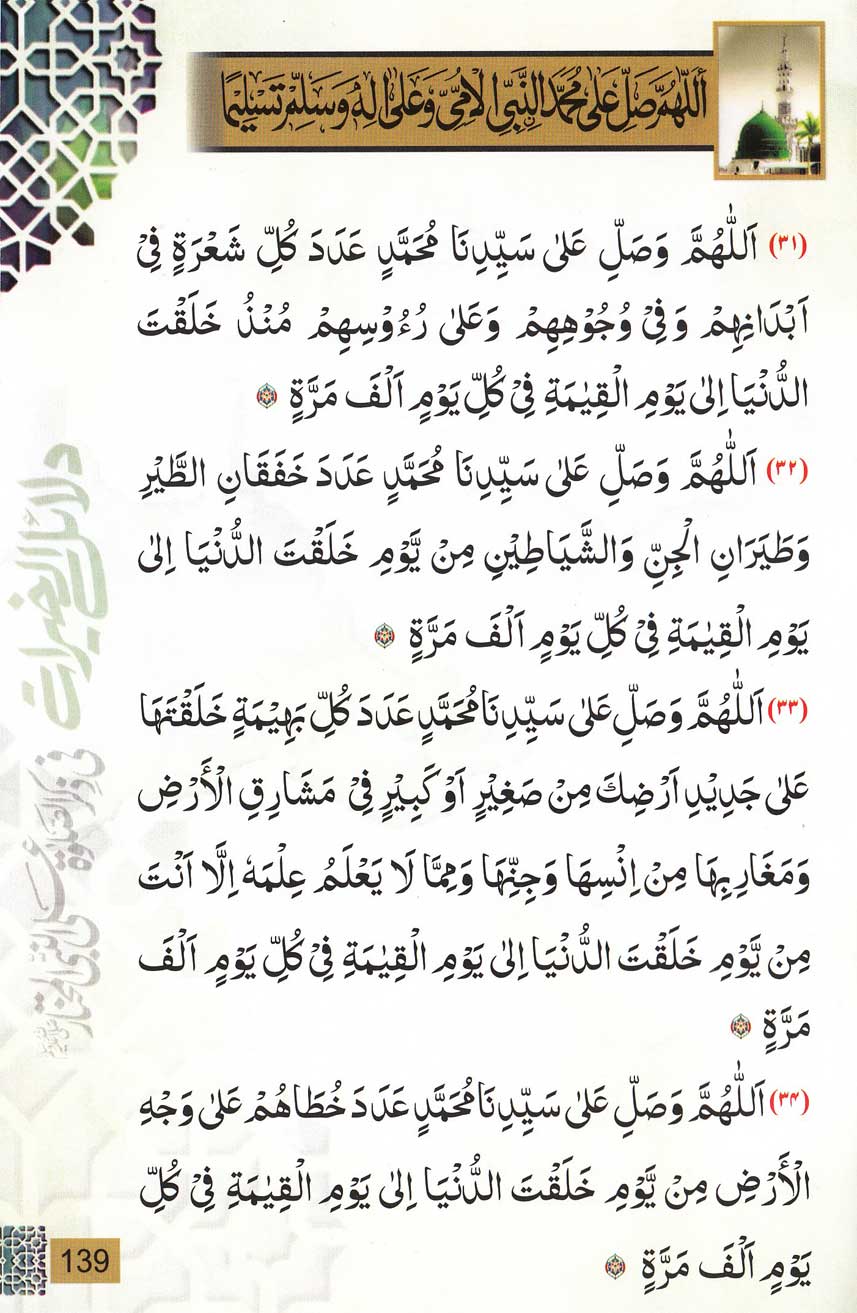 اَللّٰهُمَّ صَلِّ عَلٰى مُحَمَّدِ النَّبِيِّ الْاُمِّيِّ وَعَلٰى اٰلِهٖ وَسَلِّمْ تَسْلِيْمًا
(۳۱) اَللّٰهُمَّ وَصَلِّ عَلٰى سَيِّدِنَا مُحَمَّدٍ عَدَدَ كُلِّ شَعْرَةٍ فِيْ
اَبْدَانِهِمْ وَفِيْ وُجُوْهِهِمْ وَعَلٰى رُءُوْسِهِمْ مُنْذُ خَلَقْتَ
الدُّنْيَا اِلٰى يَوْمِ الْقِيٰمَةِ فِيْ كُلِّ يَوْمٍ اَلْفَ مَرَّةٍ
(۳۲) اَللّٰهُمَّ وَصَلِّ عَلٰى سَيِّدِنَا مُحَمَّدٍ عَدَدَ خَفَقَانِ الطَّيْرِ
وَطَيَرَانِ الْجِنِّ وَالشَّيَاطِيْنِ مِنْ يَّوْمِ خَلَقْتَ الدُّنْيَا اِلٰى
يَوْمِ الْقِيٰمَةِ فِيْ كُلِّ يَوْمٍ اَلْفَ مَرَّةٍ
(۳۳) اَللّٰهُمَّ وَصَلِّ عَلٰى سَيِّدِنَا مُحَمَّدٍ عَدَدَ كُلِّ بَهِيْمَةٍ خَلَقْتَهَا
عَلٰى جَدِيْدِ اَرْضِكَ مِنْ صَغِيْرٍ اَوْ كَبِيْرٍ فِيْ مَشَارِقِ الْأَرْضِ
وَمَغَارِبِهَا مِنْ اِنْسِهَا وَجِنِّهَا وَمِمَّا لَا يَعْلَمُ عِلْمَهٗ اِلَّا اَنْتَ
مِنْ يَّوْمِ خَلَقْتَ الدُّنْيَا اِلٰى يَوْمِ الْقِيٰمَةِ فِيْ كُلِّ يَوْمٍ اَلْفَ
مَرَّةٍ
(۳۴) اَللّٰهُمَّ وَصَلِّ عَلٰى سَيِّدِنَا مُحَمَّدٍ عَدَدَ خُطَاهُمْ عَلٰى وَجْهِ
الْأَرْضِ مِنْ يَّوْمِ خَلَقْتَ الدُّنْيَا اِلٰى يَوْمِ الْقِيٰمَةِ فِيْ كُلِّ
يَوْمٍ اَلْفَ مَرَّةٍ
دلائل الخیرات
فی ذکر الصلوٰة علی النبی المختار
139